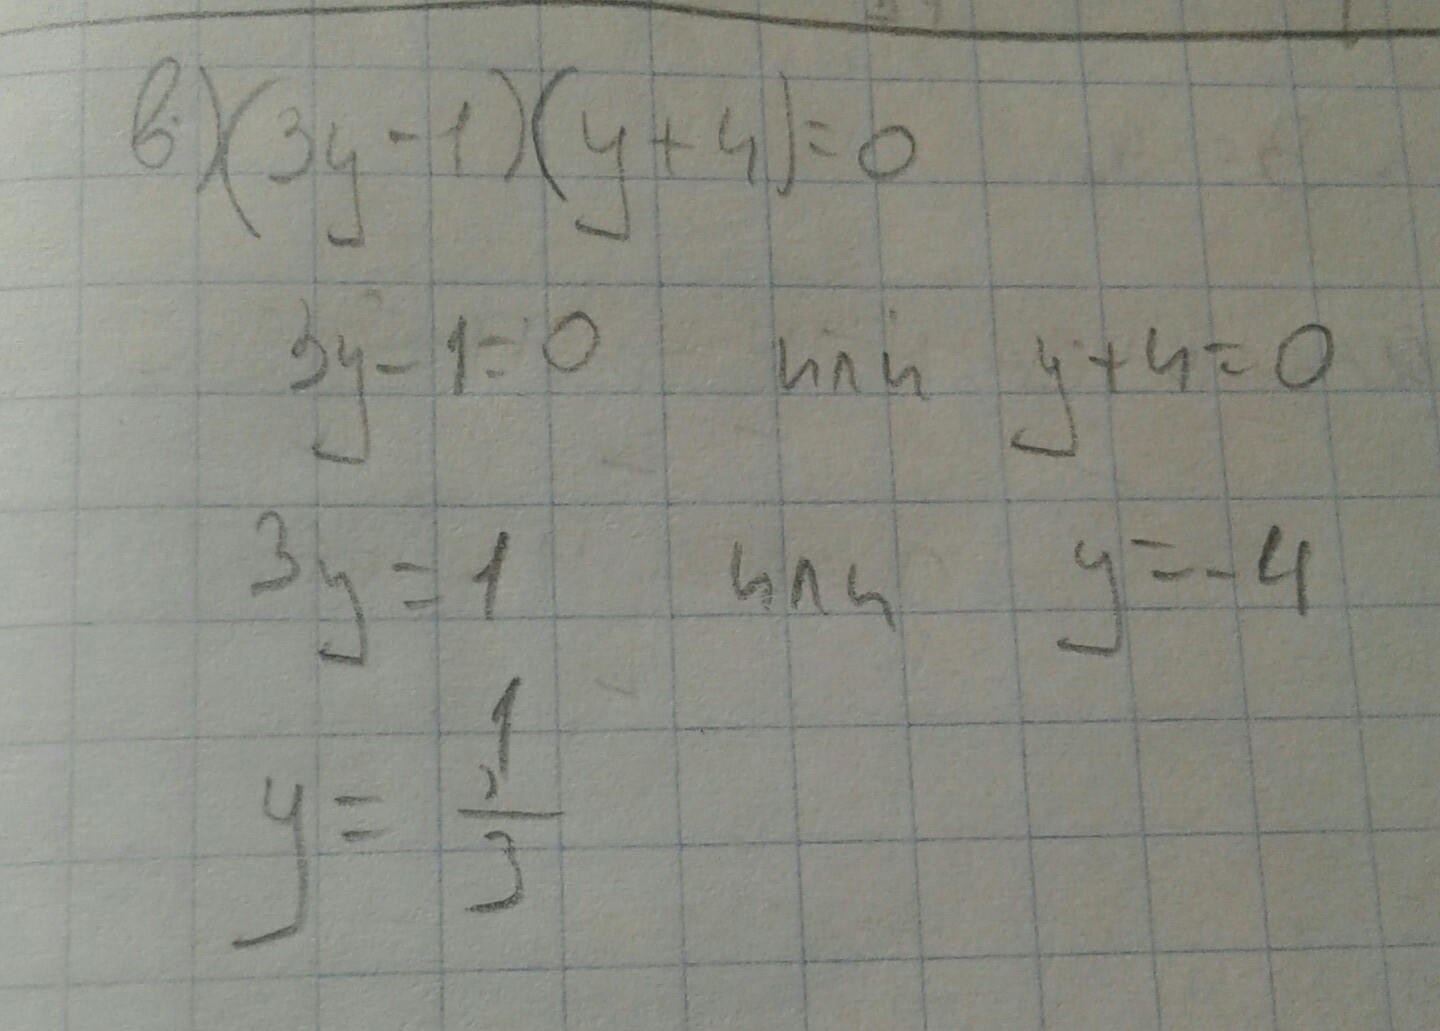 в) (3y - 1)(y + 4) = 0
3y - 1 = 0 или y + 4 = 0
3y = 1 или y = -4
y = 1/3